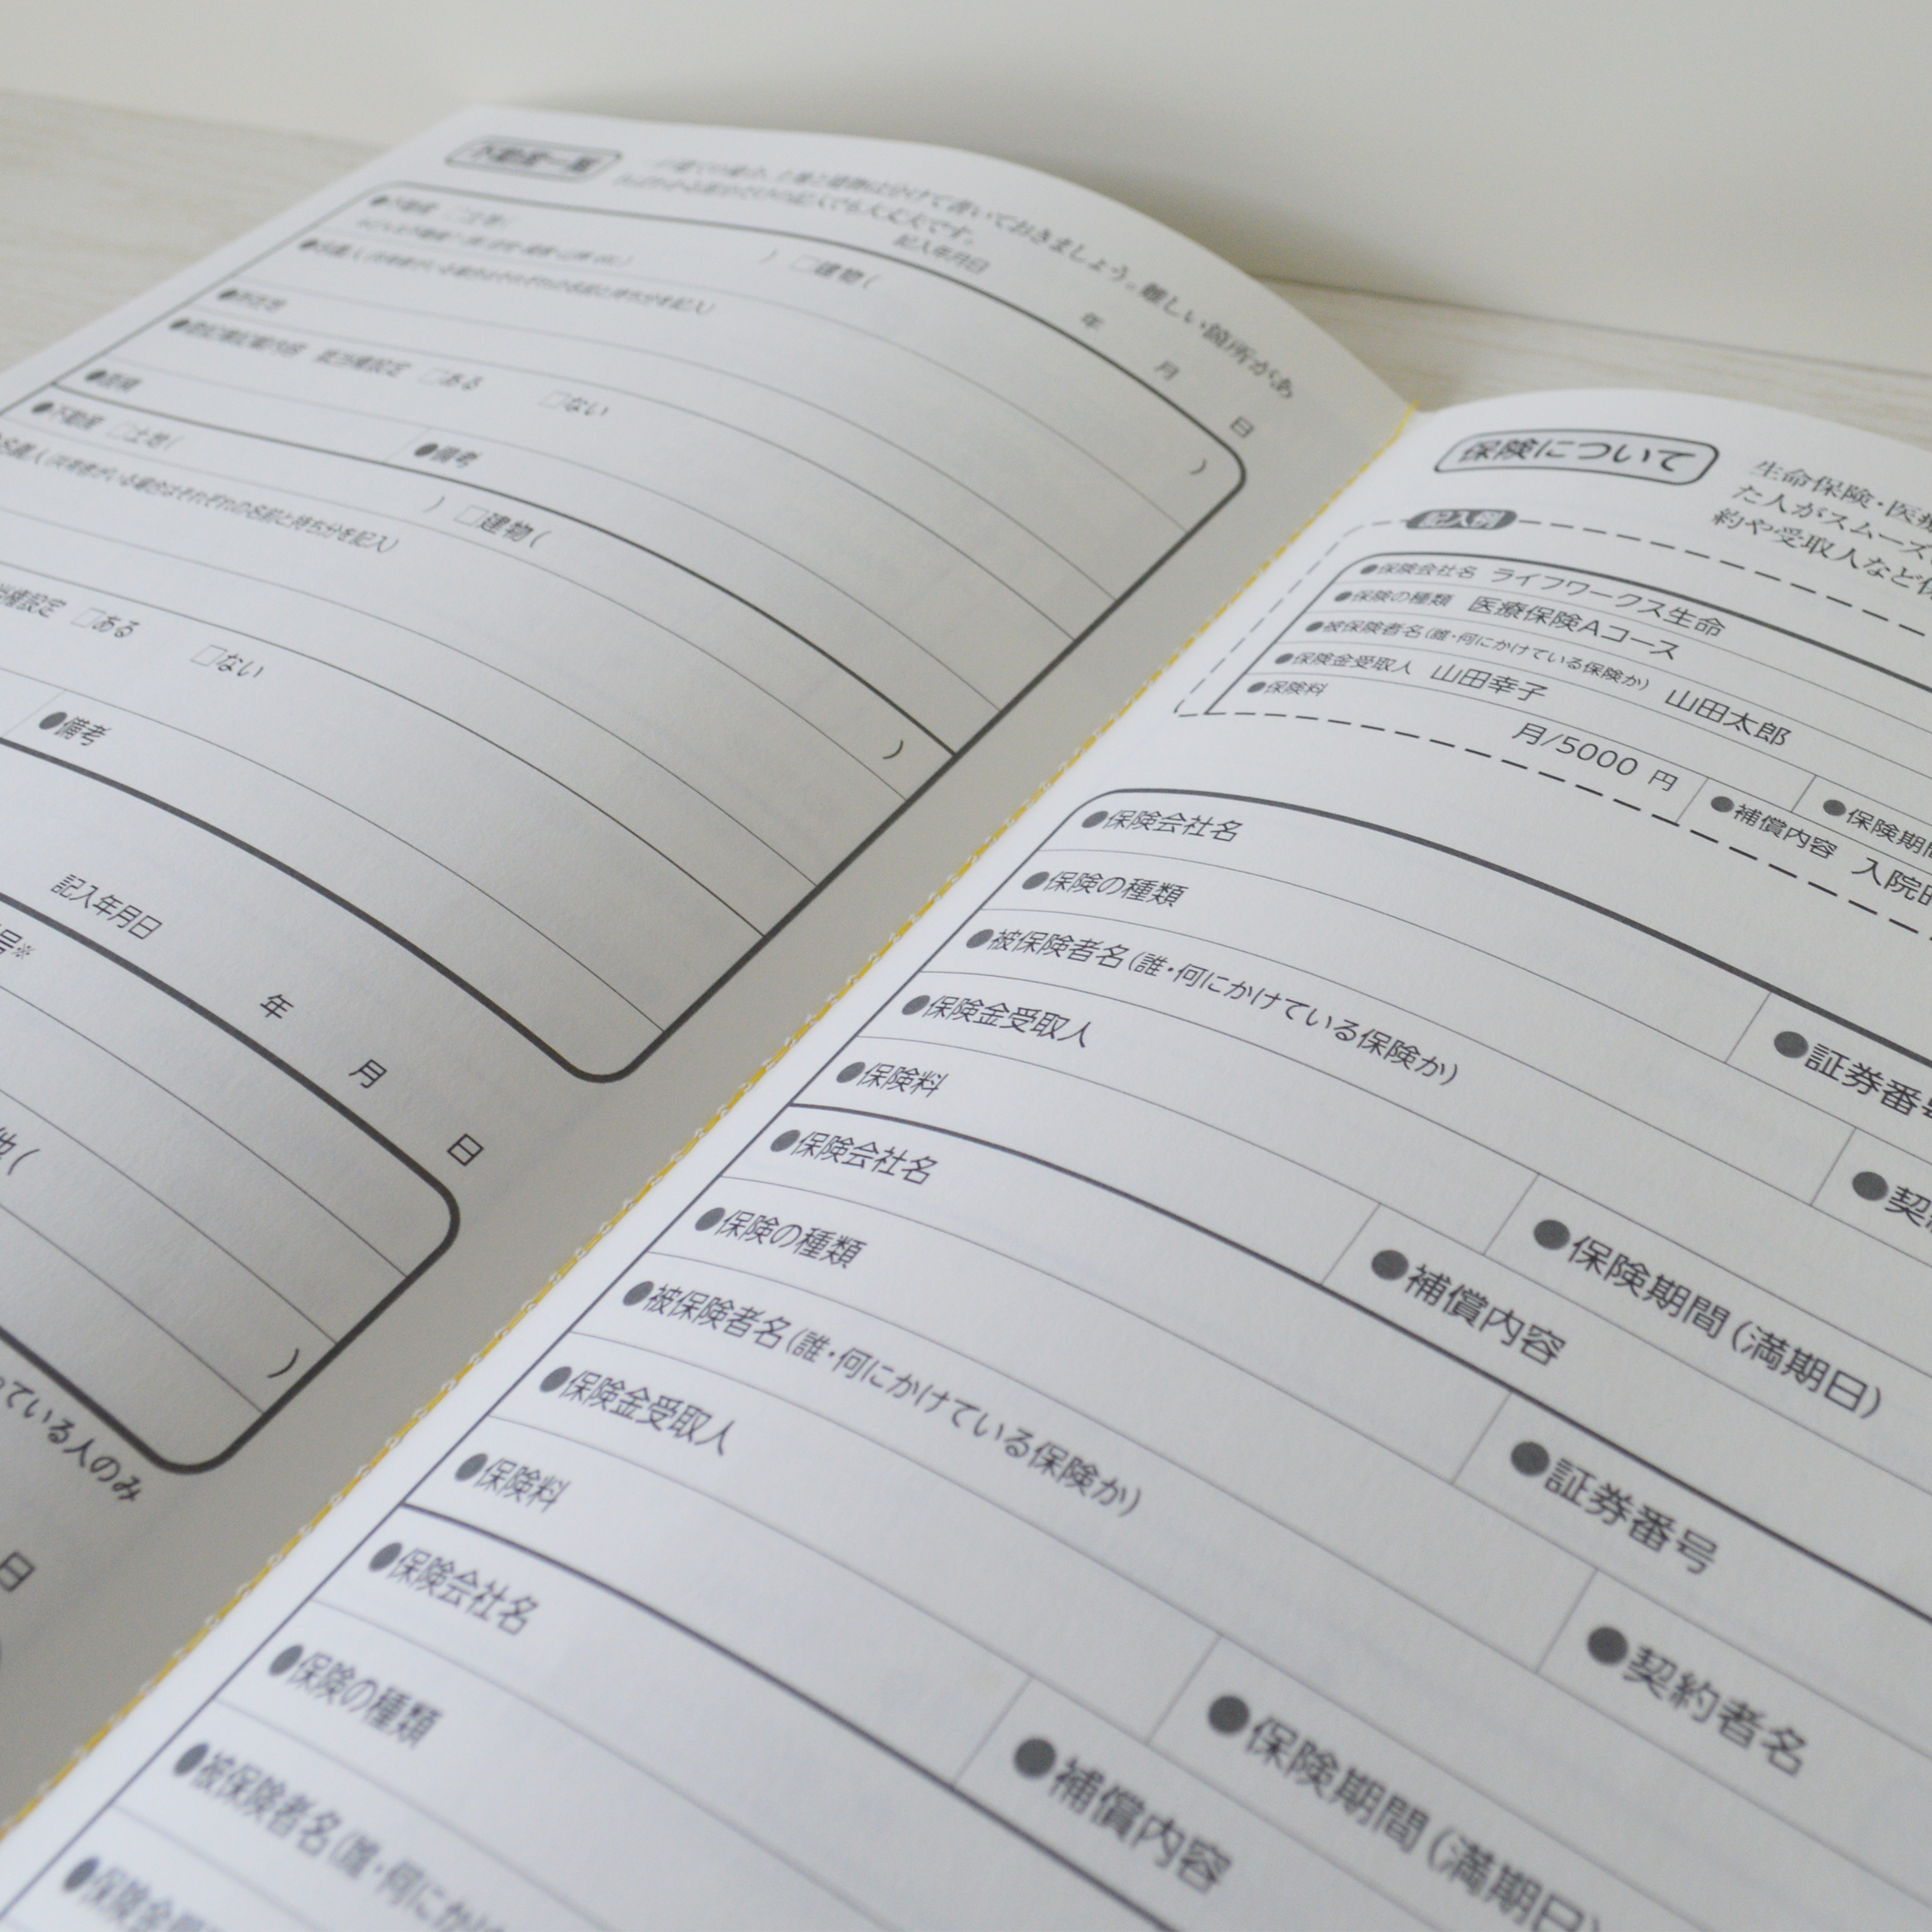 不動産一覧
けて書いておきましょう。難しい箇所があ
記入でも大丈夫です。
記入年月日 年 月 日
●不動産 □土地( ) □建物( )
●名義人(共有者がいる場合はそれぞれの名前と持ち分を記入)
●所在地
●登記簿記載内容 抵当権設定 □ある □ない
●面積 ●備考
●不動産 □土地( ) □建物( )
名義人(共有者がいる場合はそれぞれの名前と持ち分を記入)
当権設定 □ある □ない
●備考
記入年月日 年 月 日
号※
他( )
っている人のみ
日
保険について
生命保険・医療
た人がスムーズ
約や受取人など
記入例
●保険会社名 ライフワークス生命
●保険の種類 医療保険Aコース
●被保険者名(誰・何にかけている保険か) 山田太郎
●保険金受取人 山田幸子 ●保険期間
●保険料 月/5000 円 ●補償内容 入院
●保険会社名
●保険の種類 ●証券番号
●被保険者名(誰・何にかけている保険か) ●契
●保険金受取人 ●保険期間(満期日)
●保険料 ●補償内容
●保険会社名
●保険の種類 ●証券番号
●被保険者名(誰・何にかけている保険か) ●契約者名
●保険金受取人 ●保険期間(満期日)
●保険料 ●補償内容
●保険会社名
●保険の種類
●被保険者名(誰・何にか
●保険金